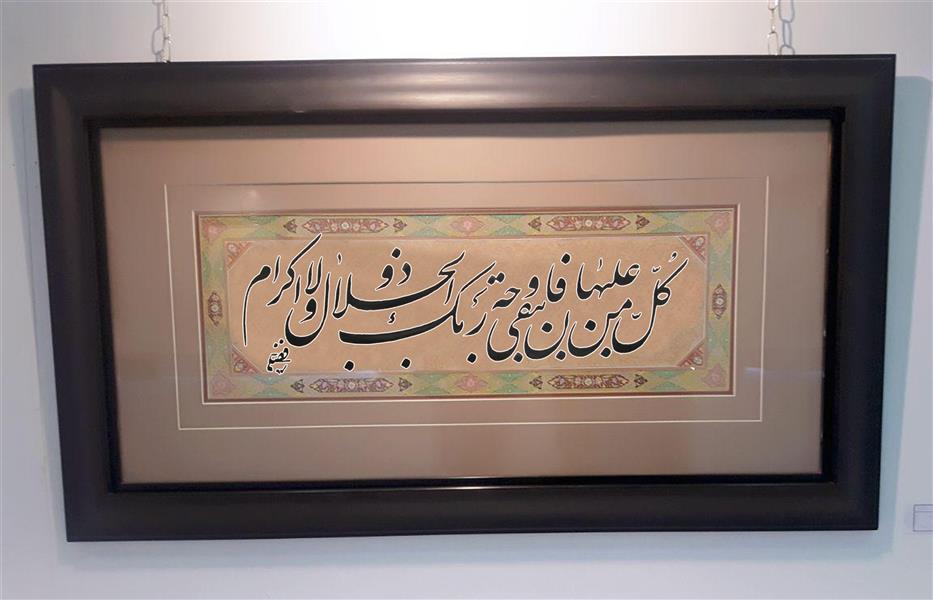 كُلّ من عليها فان و يبقى وجه ربك ذو الجلال و الاكرام